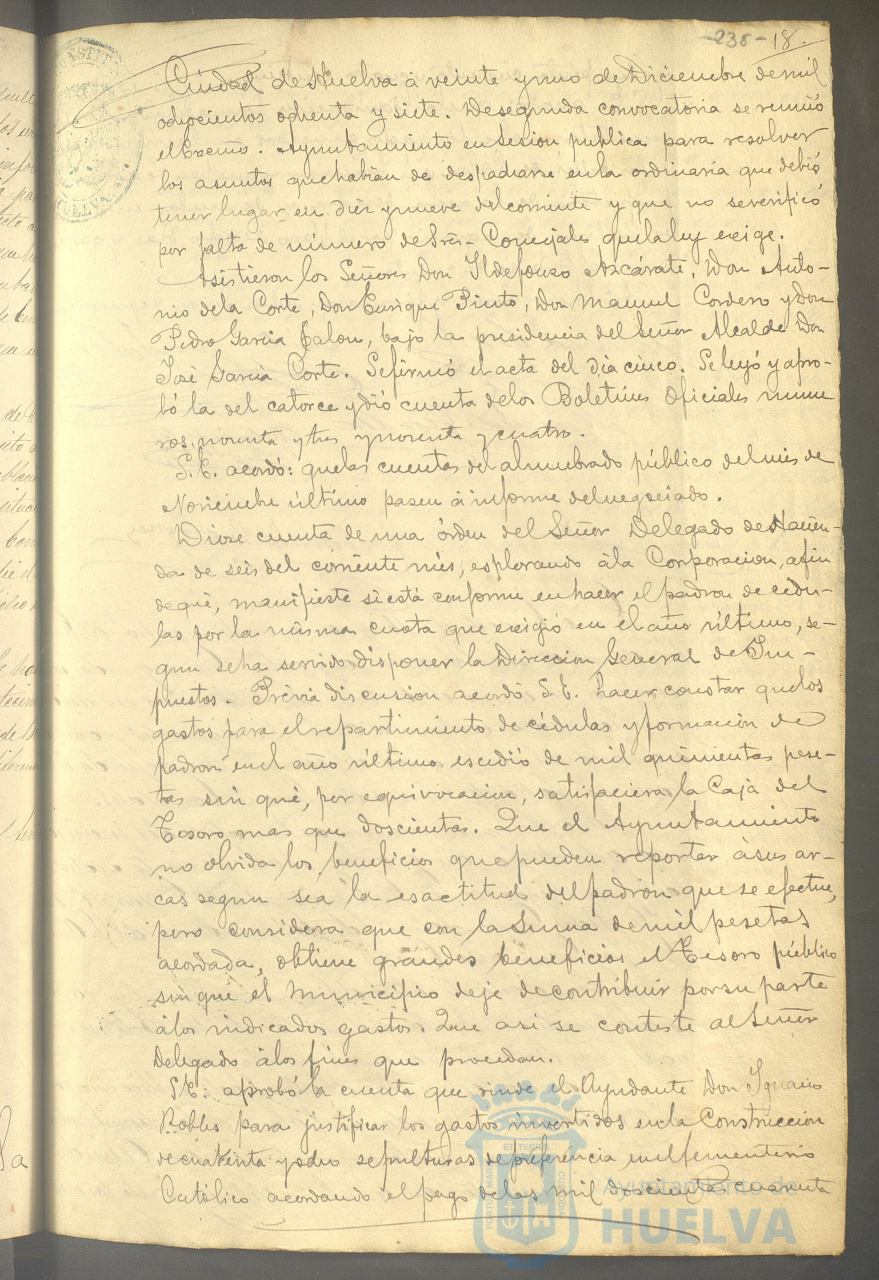 -235- 18.
Ciudad de Huelva à veinte y uno de Diciembre de mil
ochocientos ochenta y siete. De segunda convocatoria se reunió
el Excmo. Ayuntamiento en sesion publica para resolver
los asuntos que habian de despacharse en la ordinaria que debió
tener lugar en diez y nueve del corriente y que no se verificó
por falta de número de Srēs. Concejales que la ley exige.
Asistieron los Señores Don Ildefonso Azcárate, Don Anto-
nio de la Corte, Don Enrique Pinto, Don Manuel Cordero y Don
Pedro Garcia Jalon, bajo la presidencia del Señor Alcalde Don
José Garcia Corte. Se firmó el acta del dia cinco. Se leyó y apro-
bó la del catorce y dió cuenta de los Boletines Oficiales nume
ros, noventa y tres y noventa y cuatro.
S.E. acordó: que las cuentas del alumbrado público del mes de
Noviembre último pasen à informe del negociado.
Diose cuenta de una órden del Señor Delegado de Hacien-
da de seis del corriente mes, esplorando à la Corporacion, a fin
de que, manifieste si está conforme en hacer el padron de cédu-
las por la misma cuota que exigió en el año último, se-
gun se ha servido disponer la Direccion General de Im-
puestos. Prévia discusion acordó S.E. hacer constar que los
gastos para el repartimiento de cédulas y formacion de
padron en el año último escedió de mil quinientas pese-
tas sin que, por equivocacion, satisfaciera la Caja del
Tesoro mas que doscientas. Que el Ayuntamiento
no olvida los beneficios que pueden reportar à sus ar-
cas segun sea la esactitud del padron que se efectue,
pero considera que con la suma de mil pesetas
acordada, obtiene grandes beneficios el Tesoro público
sin que el Municipio deje de contribuir por su parte
à los indicados gastos. Que asi se conteste al Señor
Delegado à los fines que procedan.
S.E. aprobó la cuenta que rinde el Ayudante Don Ignacio
Robles para justificar los gastos invertidos en la Construccion
de cuarenta y ocho sepulturas de preferencia en el Cementerio
Católico acordando el pago de las mil doscientas cuarenta
Ayuntamiento de
HUELVA